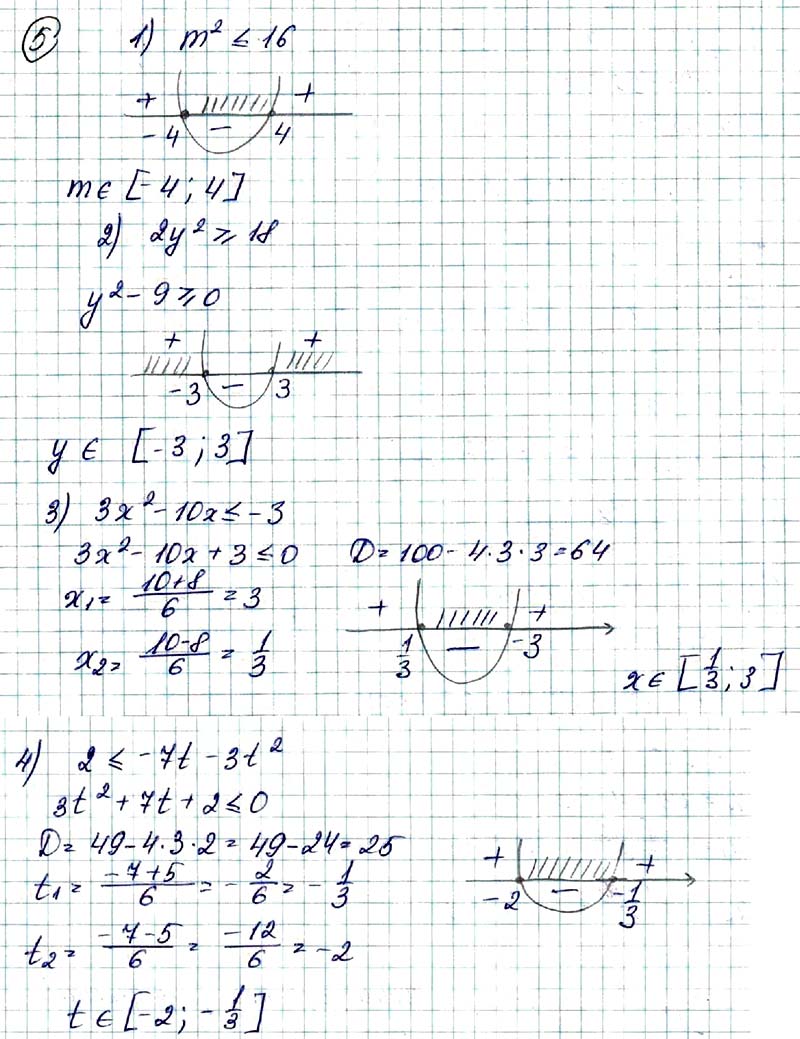 5 1) m² ≤ 16
+ +
-4 − 4
m ∈ [-4; 4]
2) 2y² ≥ 18
y² - 9 ≥ 0
+ +
-3 − 3
y ∈ [-3; 3]
3) 3x² - 10x ≤ -3
3x² - 10x + 3 ≤ 0 D = 100 - 4·3·3 = 64
x₁ = (10+8)/6 = 3
+ +
x₂ = (10-8)/6 = 1/3
1/3 − -3
x ∈ [1/3; 3]
4) 2 ≤ -7t - 3t²
3t² + 7t + 2 ≤ 0
D = 49 - 4·3·2 = 49 - 24 = 25
t₁ = (-7+5)/6 = -2/6 = -1/3
+ +
-2 − -1/3
t₂ = (-7-5)/6 = -12/6 = -2
t ∈ [-2; -1/3]